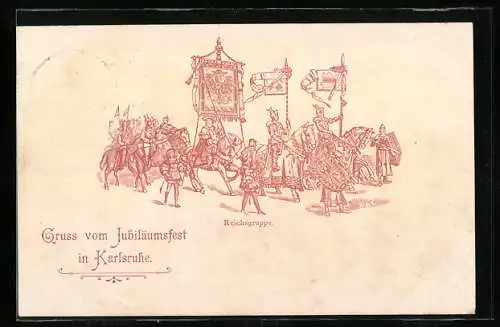 Reichsgruppe.
Gruss vom Jubiläumsfest
in Karlsruhe.